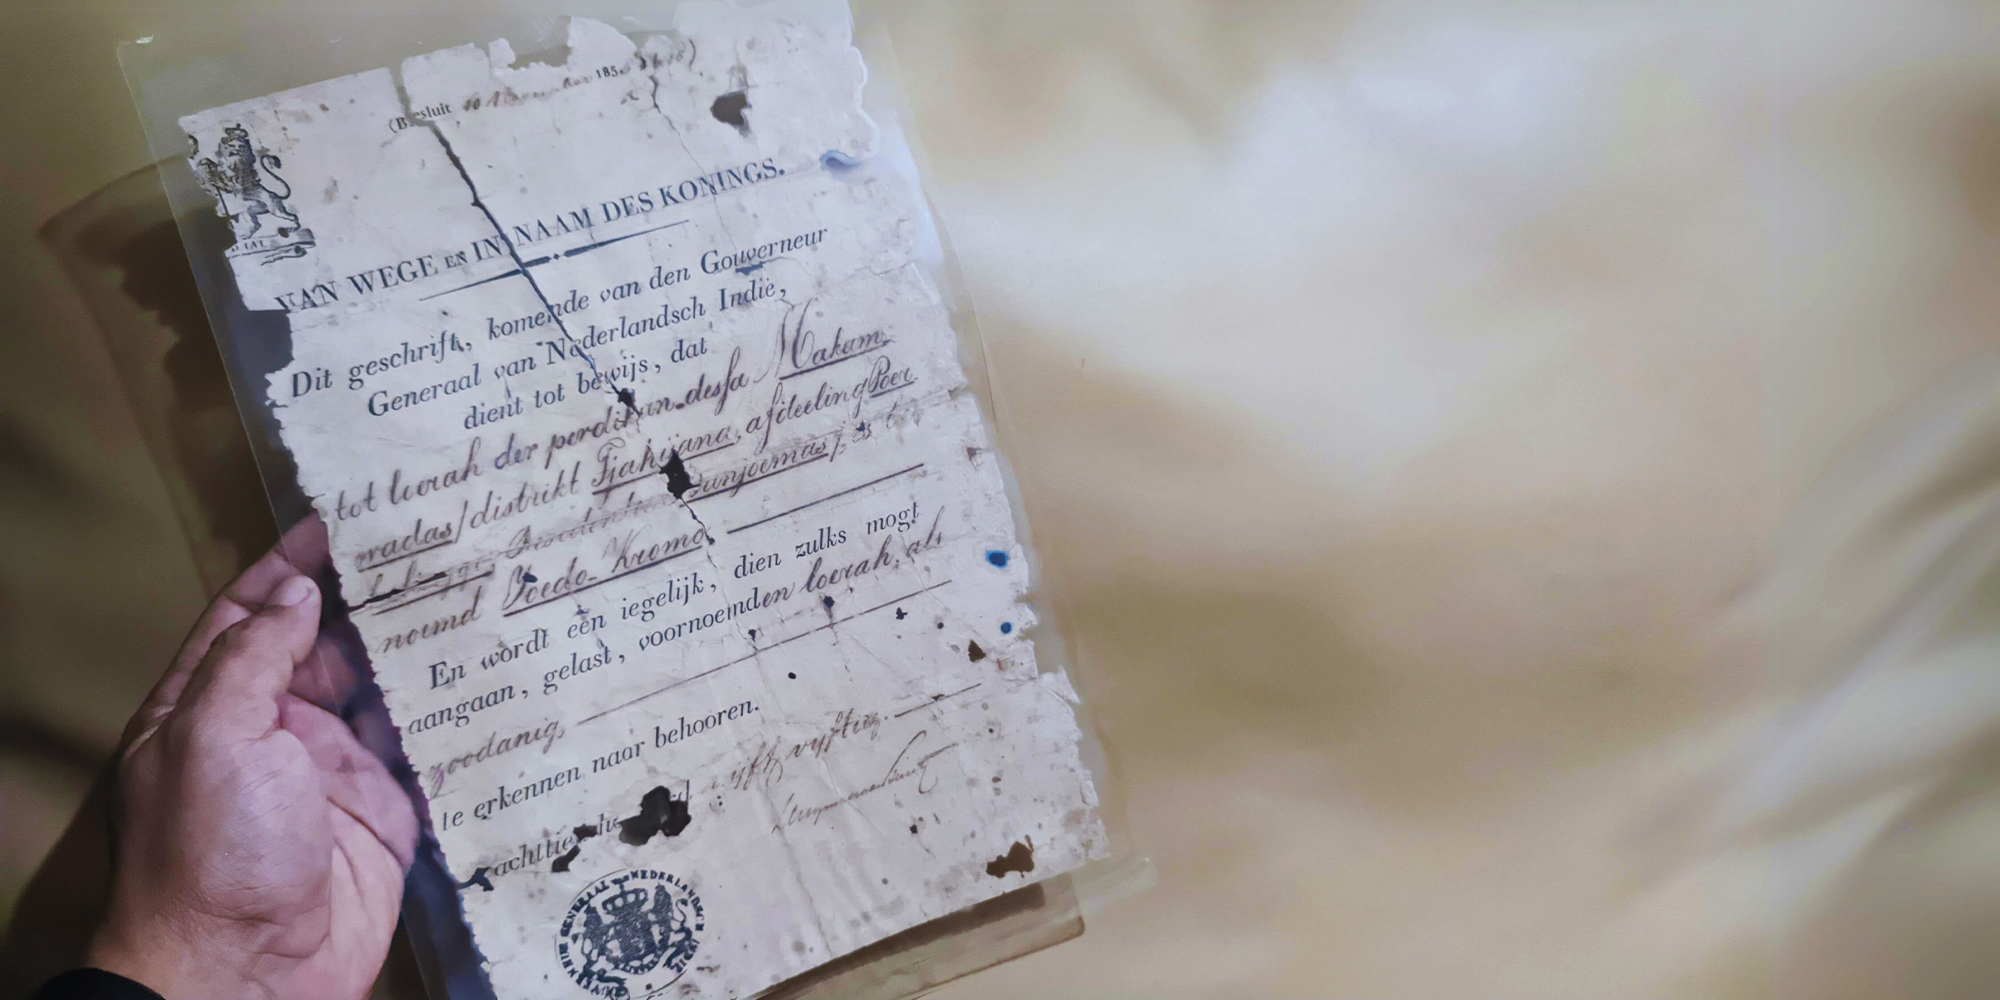 (Besluit 10 November 185
VAN WEGE EN IN NAAM DES KONINGS.
Dit geschrift, komende van den Gouverneur
Generaal van Nederlandsch Indië,
dient tot bewijs, dat
tot loerah der perdikan dessa Makam,
distrikt Tjahijana, afdeeling Poer
Banjoemas
noemd Joedo-Kromo
En wordt een iegelijk, dien zulks mogt
aangaan, gelast, voornoemden loerah, als
zoodanig,
te erkennen naar behooren.
achttien vijf vijftig.
GENERAAL NEDERLANDSCH